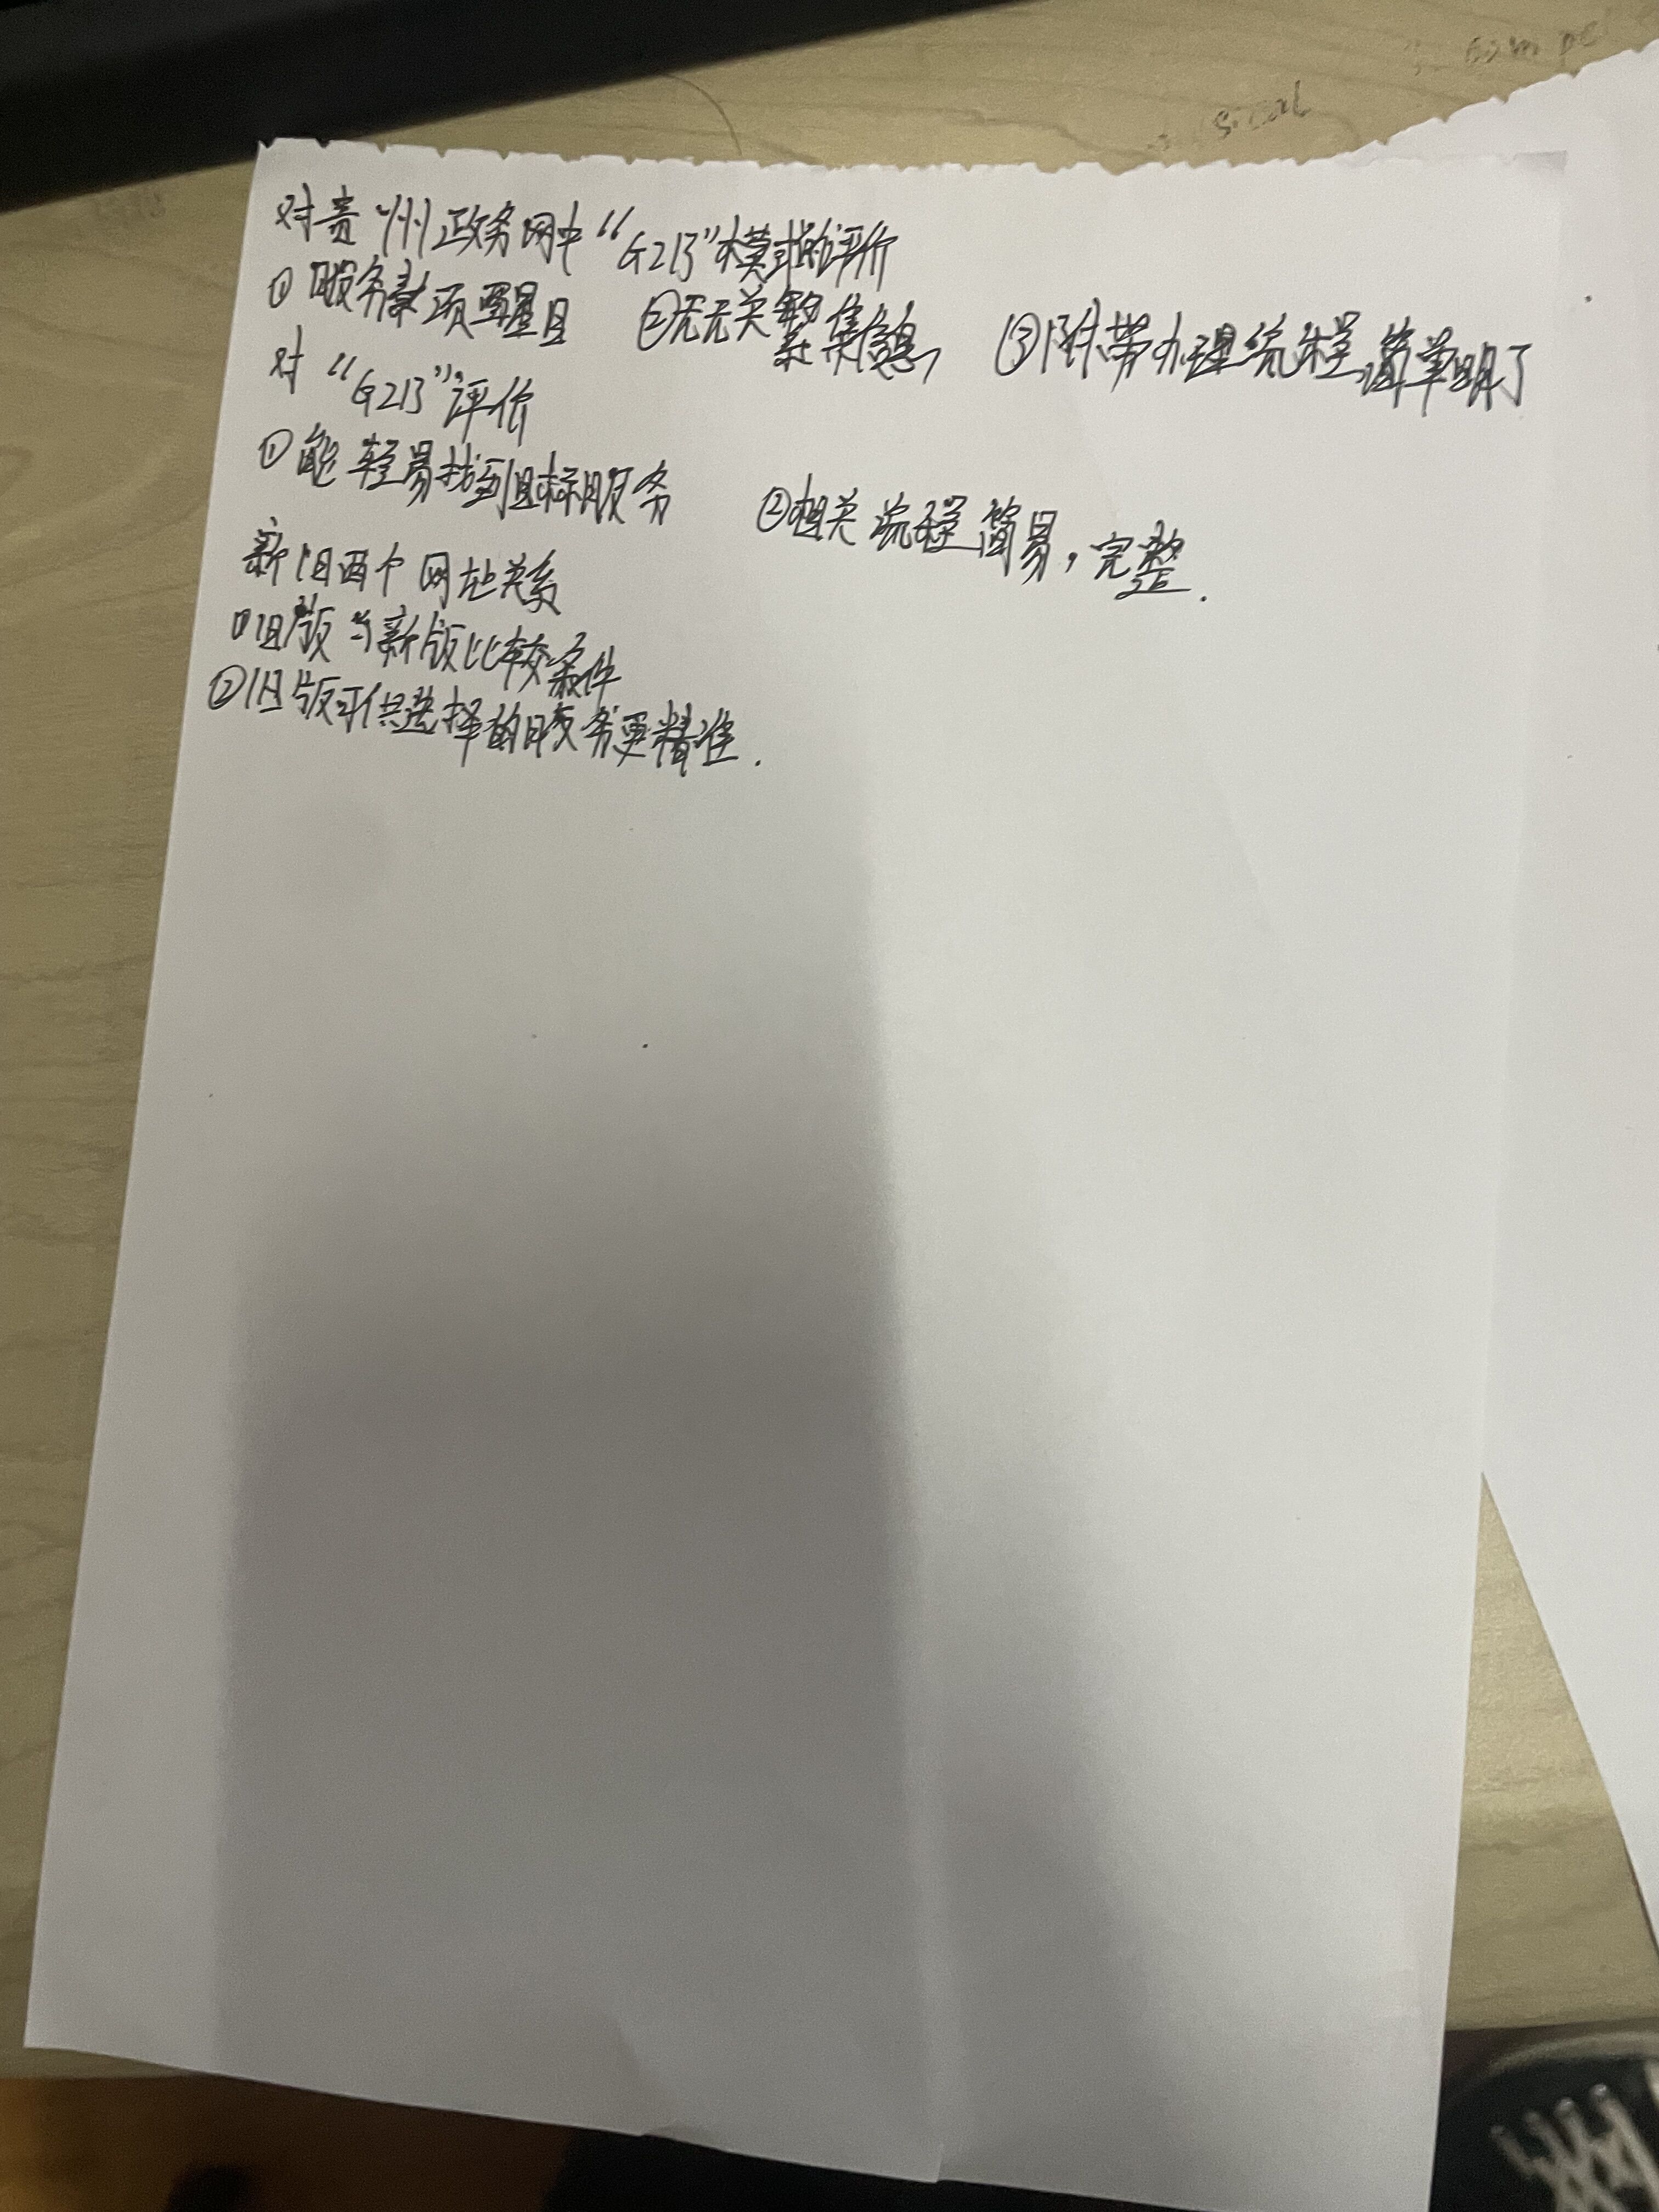 对贵州政务网中“G2B”模式的评价
①服务款项醒目 ②无无关繁杂信息, ③附带办理流程,简单明了
对“G2B”评价
①能轻易找到目标服务 ②相关流程简易,完整.
新旧两个网址关系
旧版与新版比较条件
②旧版可供选择的服务更精准.
sical
com pe